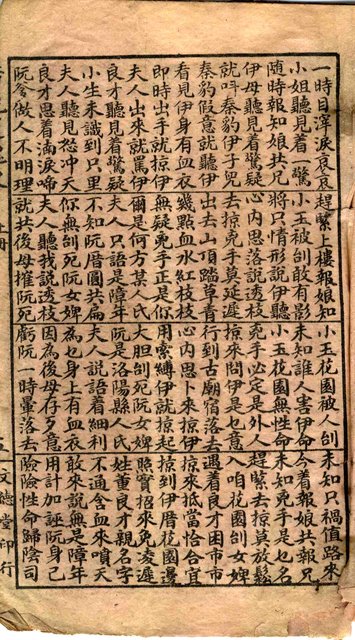 一時目滓淚哀哀 趕緊上樓報娘知 小玉花園被人刣 未知只禍值路來
小姐聽見着一驚 小玉被刣敢有影 未知誰人害伊命 今着報娘共報兄
隨時報知娘共兄 將只情形說伊聽 小玉花園無性命 未知兇手是也名
伊母聽見着驚疑 心內思落說透枝 兇手必定是外人 趕緊去掠莫放鬆
就叫秦豹伊子兜 去掠兇手莫延遲 掠來問伊是乜意 入咱花園刣女婢
秦豹假意就聽伊 出去山頂踏草青 行到古廟宿落去 遇着良才困市市
看見伊身有血衣 幾點血水紅枝枝 心內思卜來掠伊 掠來抵當恰合宜
即時出手就掠伊 無疑兇手正是你 用索縛伊就掠起 掠到伊厝花園邊
夫人出來就罵伊 爾是何方某人氏 大胆刣死阮女婢 照實招來免凌遲
良才聽見着驚疑 夫人只語是障年 阮是洛陽縣人氏 姓董良才親名字
小生未識到只里 不知阮厝圓共扁 夫人說語着細利 不通含血來噴天
夫人聽見怒冲天 你無刣死阮女婢 為乜身上有血衣 敢來說無是障年
良才思着滴淚啼 夫人聽我說透枝 因為後母存歹意 用計加誣阮身己
阮爹做人不明理 就共後母摧阮死 虧阮一時暈落去 險險性命歸陰司
上冊 五 文德堂印行